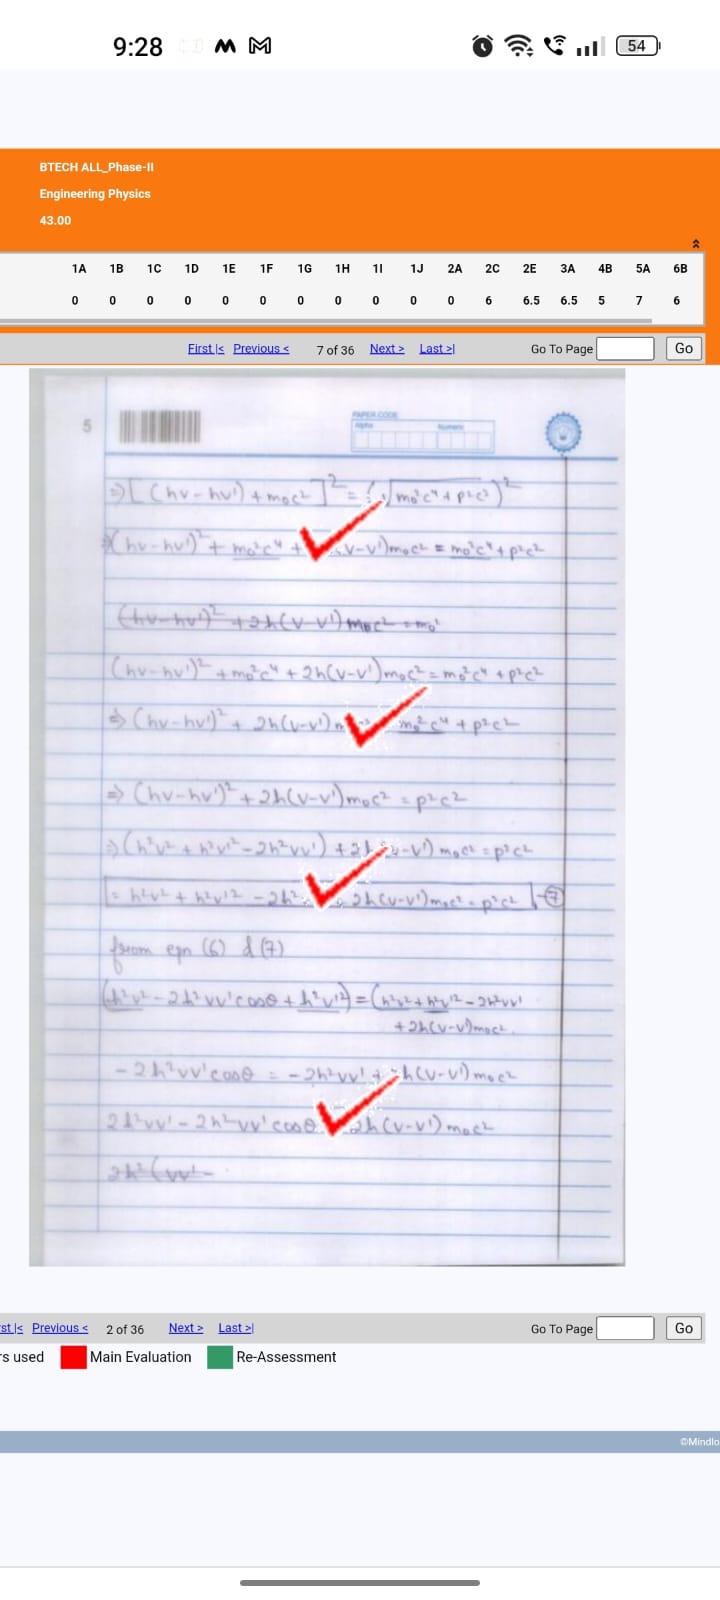 9:28
54
BTECH ALL_Phase-II
Engineering Physics
43.00
1A 1B 1C 1D 1E 1F 1G 1H 1I 1J 2A 2C 2E 3A 4B 5A 6B
0 0 0 0 0 0 0 0 0 0 0 6 6.5 6.5 5 7 6
First |< Previous < 7 of 36 Next > Last >| Go To Page Go
5
PAPER CODE
Alpha Numeric
⇒ [(hν-hν') + m₀c²]² = (√m₀²c⁴ + p²c²)²
(hν-hν')² + m₀²c⁴ + ν-ν')m₀c² = m₀²c⁴ + p²c²
(hν-hν')² + 2h(ν-ν') m₀c² = m₀²
(hν-hν')² + m₀²c⁴ + 2h(ν-ν')m₀c² = m₀²c⁴ + p²c²
⇒ (hν-hν')² + 2h(ν-ν') m₀²c⁴ + p²c²
⇒ (hν-hν')² + 2h(ν-ν')m₀c² = p²c²
⇒ (h²ν² + h²ν'² - 2h²νν') + 2h -ν') m₀c² = p²c²
= h²ν² + h²ν'² - 2h² 2h(ν-ν')m₀c² = p²c² -⑦
from eqn (6) & (7)
(h²ν² - 2h²νν'cosθ + h²ν'²) = (h²ν² + h²ν'² - 2h²νν'
+ 2h(ν-ν')m₀c².
- 2h²νν'cosθ = - 2h²νν' + h(ν-ν') m₀c²
2h²νν' - 2h²νν'cosθ 2h(ν-ν') m₀c²
2h²(νν' -
rst |< Previous < 2 of 36 Next > Last >| Go To Page Go
rs used Main Evaluation Re-Assessment
©Mindlo